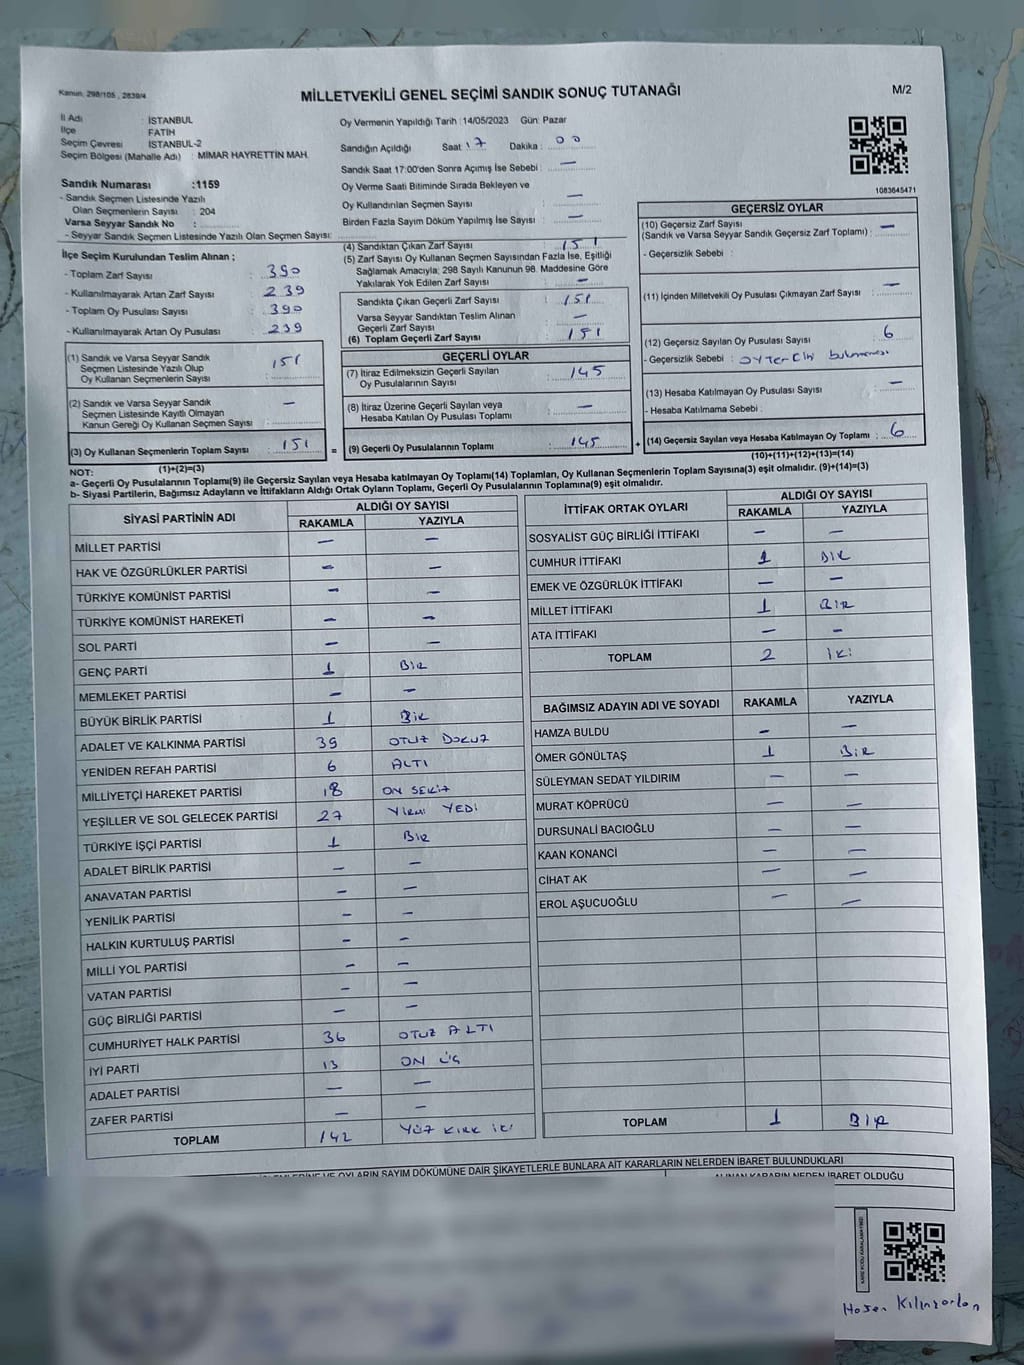 Kanun, 298/105 , 2839/4
MİLLETVEKİLİ GENEL SEÇİMİ SANDIK SONUÇ TUTANAĞI
M/2
İl Adı : İSTANBUL
İlçe FATİH
Seçim Çevresi : İSTANBUL-2
Seçim Bölgesi (Mahalle Adı) : MİMAR HAYRETTİN MAH.
Sandık Numarası :1159
- Sandık Seçmen Listesinde Yazılı
Olan Seçmenlerin Sayısı : 204
Varsa Seyyar Sandık No :
- Seyyar Sandık Seçmen Listesinde Yazılı Olan Seçmen Sayısı:
Oy Vermenin Yapıldığı Tarih :14/05/2023 Gün: Pazar
Sandığın Açıldığı Saat 17 Dakika : 00
Sandık Saat 17:00'den Sonra Açımış İse Sebebi : —
Oy Verme Saati Bitiminde Sırada Bekleyen ve
Oy Kullandırılan Seçmen Sayısı : —
Birden Fazla Sayım Döküm Yapılmış İse Sayısı : —
1083645471
İlçe Seçim Kurulundan Teslim Alınan ;
- Toplam Zarf Sayısı : 390
- Kullanılmayarak Artan Zarf Sayısı : 239
- Toplam Oy Pusulası Sayısı : 390
- Kullanılmayarak Artan Oy Pusulası : 239
(1) Sandık ve Varsa Seyyar Sandık
Seçmen Listesinde Yazılı Olup
Oy Kullanan Seçmenlerin Sayısı : 151
(2) Sandık ve Varsa Seyyar Sandık
Seçmen Listesinde Kayıtlı Olmayan
Kanun Gereği Oy Kullanan Seçmen Sayısı : —
(3) Oy Kullanan Seçmenlerin Toplam Sayısı : 151
(1)+(2)=(3)
(4) Sandıktan Çıkan Zarf Sayısı : 151
(5) Zarf Sayısı Oy Kullanan Seçmen Sayısından Fazla İse, Eşitliği
Sağlamak Amacıyla; 298 Sayılı Kanunun 98. Maddesine Göre
Yakılarak Yok Edilen Zarf Sayısı : —
Sandıkta Çıkan Geçerli Zarf Sayısı : 151
Varsa Seyyar Sandıktan Teslim Alınan
Geçerli Zarf Sayısı : —
(6) Toplam Geçerli Zarf Sayısı : 151
GEÇERLİ OYLAR
(7) İtiraz Edilmeksizin Geçerli Sayılan
Oy Pusulalarının Sayısı : 145
(8) İtiraz Üzerine Geçerli Sayılan veya
Hesaba Katılan Oy Pusulası Toplamı : —
= (9) Geçerli Oy Pusulalarının Toplamı : 145 +
GEÇERSİZ OYLAR
(10) Geçersiz Zarf Sayısı
(Sandık ve Varsa Seyyar Sandık Geçersiz Zarf Toplamı) : —
- Geçersizlik Sebebi :
(11) İçinden Milletvekili Oy Pusulası Çıkmayan Zarf Sayısı : —
(12) Geçersiz Sayılan Oy Pusulası Sayısı : 6
- Geçersizlik Sebebi :
(13) Hesaba Katılmayan Oy Pusulası Sayısı : —
- Hesaba Katılmama Sebebi :
(14) Geçersiz Sayılan veya Hesaba Katılmayan Oy Toplamı : 6
(10)+(11)+(12)+(13)=(14)
NOT:
a- Geçerli Oy Pusulalarının Toplamı(9) ile Geçersiz Sayılan veya Hesaba katılmayan Oy Toplamı(14) Toplamları, Oy Kullanan Seçmenlerin Toplam Sayısına(3) eşit olmalıdır. (9)+(14)=(3)
b- Siyasi Partilerin, Bağımsız Adayların ve İttifakların Aldığı Ortak Oyların Toplamı, Geçerli Oy Pusulalarının Toplamına(9) eşit olmalıdır.
SİYASİ PARTİNİN ADI ALDIĞI OY SAYISI
RAKAMLA YAZIYLA
MİLLET PARTİSİ — —
HAK VE ÖZGÜRLÜKLER PARTİSİ — —
TÜRKİYE KOMÜNİST PARTİSİ — —
TÜRKİYE KOMÜNİST HAREKETİ — —
SOL PARTİ — —
GENÇ PARTİ 1 BİR
MEMLEKET PARTİSİ — —
BÜYÜK BİRLİK PARTİSİ 1 BİR
ADALET VE KALKINMA PARTİSİ 39 OTUZ DOKUZ
YENİDEN REFAH PARTİSİ 6 ALTI
MİLLİYETÇİ HAREKET PARTİSİ 18 ON SEKİZ
YEŞİLLER VE SOL GELECEK PARTİSİ 27 YİRMİ YEDİ
TÜRKİYE İŞÇİ PARTİSİ 1 BİR
ADALET BİRLİK PARTİSİ — —
ANAVATAN PARTİSİ — —
YENİLİK PARTİSİ — —
HALKIN KURTULUŞ PARTİSİ — —
MİLLİ YOL PARTİSİ — —
VATAN PARTİSİ — —
GÜÇ BİRLİĞİ PARTİSİ — —
CUMHURİYET HALK PARTİSİ 36 OTUZ ALTI
İYİ PARTİ 13 ON ÜÇ
ADALET PARTİSİ — —
ZAFER PARTİSİ — —
TOPLAM 142 YÜZ KIRK İKİ
İTTİFAK ORTAK OYLARI ALDIĞI OY SAYISI
RAKAMLA YAZIYLA
SOSYALİST GÜÇ BİRLİĞİ İTTİFAKI — —
CUMHUR İTTİFAKI 1 BİR
EMEK VE ÖZGÜRLÜK İTTİFAKI — —
MİLLET İTTİFAKI 1 BİR
ATA İTTİFAKI — —
TOPLAM 2 İKİ
BAĞIMSIZ ADAYIN ADI VE SOYADI RAKAMLA YAZIYLA
HAMZA BULDU — —
ÖMER GÖNÜLTAŞ 1 BİR
SÜLEYMAN SEDAT YILDIRIM — —
MURAT KÖPRÜCÜ — —
DURSUNALİ BACIOĞLU — —
KAAN KONANCİ — —
CİHAT AK — —
EROL AŞUCUOĞLU — —
TOPLAM 1 BİR
OYLARIN SAYIM DÖKÜMÜNE DAİR ŞİKAYETLERLE BUNLARA AİT KARARLARIN NELERDEN İBARET BULUNDUKLARI
ALINAN KARARIN NEDEN İBARET OLDUĞU